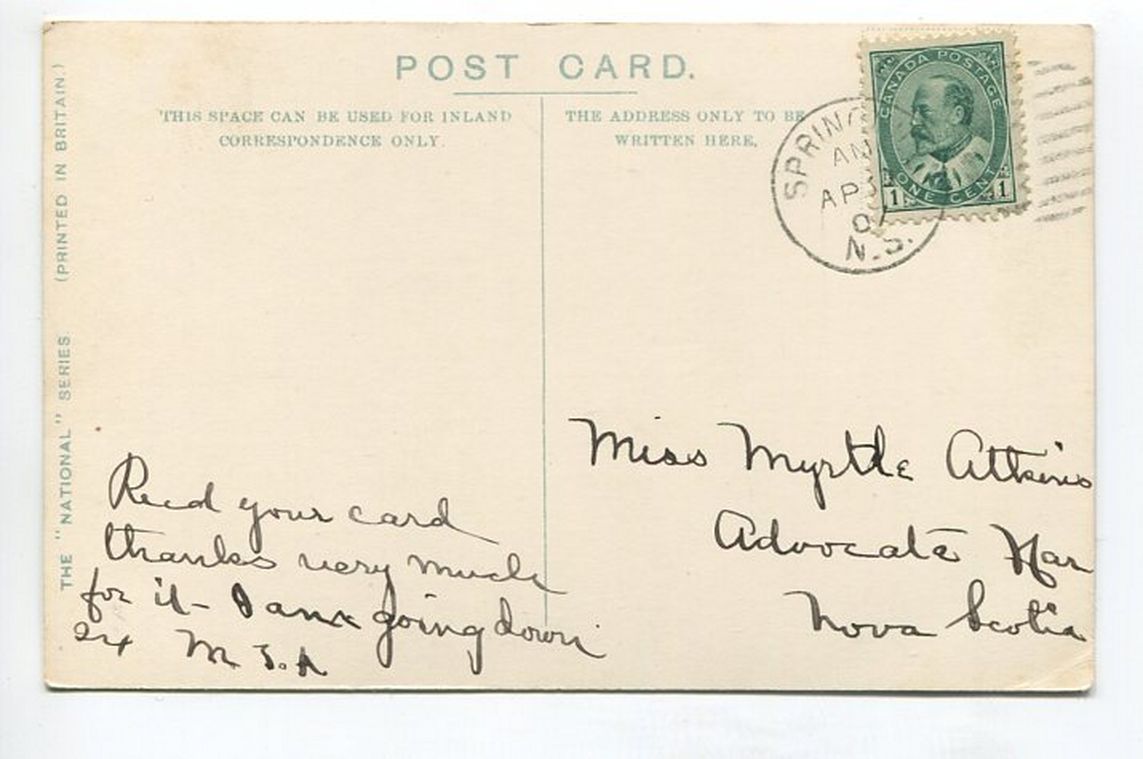 POST CARD.
THIS SPACE CAN BE USED FOR INLAND
CORRESPONDENCE ONLY.
THE ADDRESS ONLY TO BE
WRITTEN HERE,
THE "NATIONAL" SERIES. (PRINTED IN BRITAIN.)
CANADA POSTAGE
ONE CENT
1 1
SPRING
AM
AP
0
N.S.
Recd your card
thanks very much
for it- I am going down
24 M
Miss Myrtle Atkins
Advocate Har
Nova Scotia